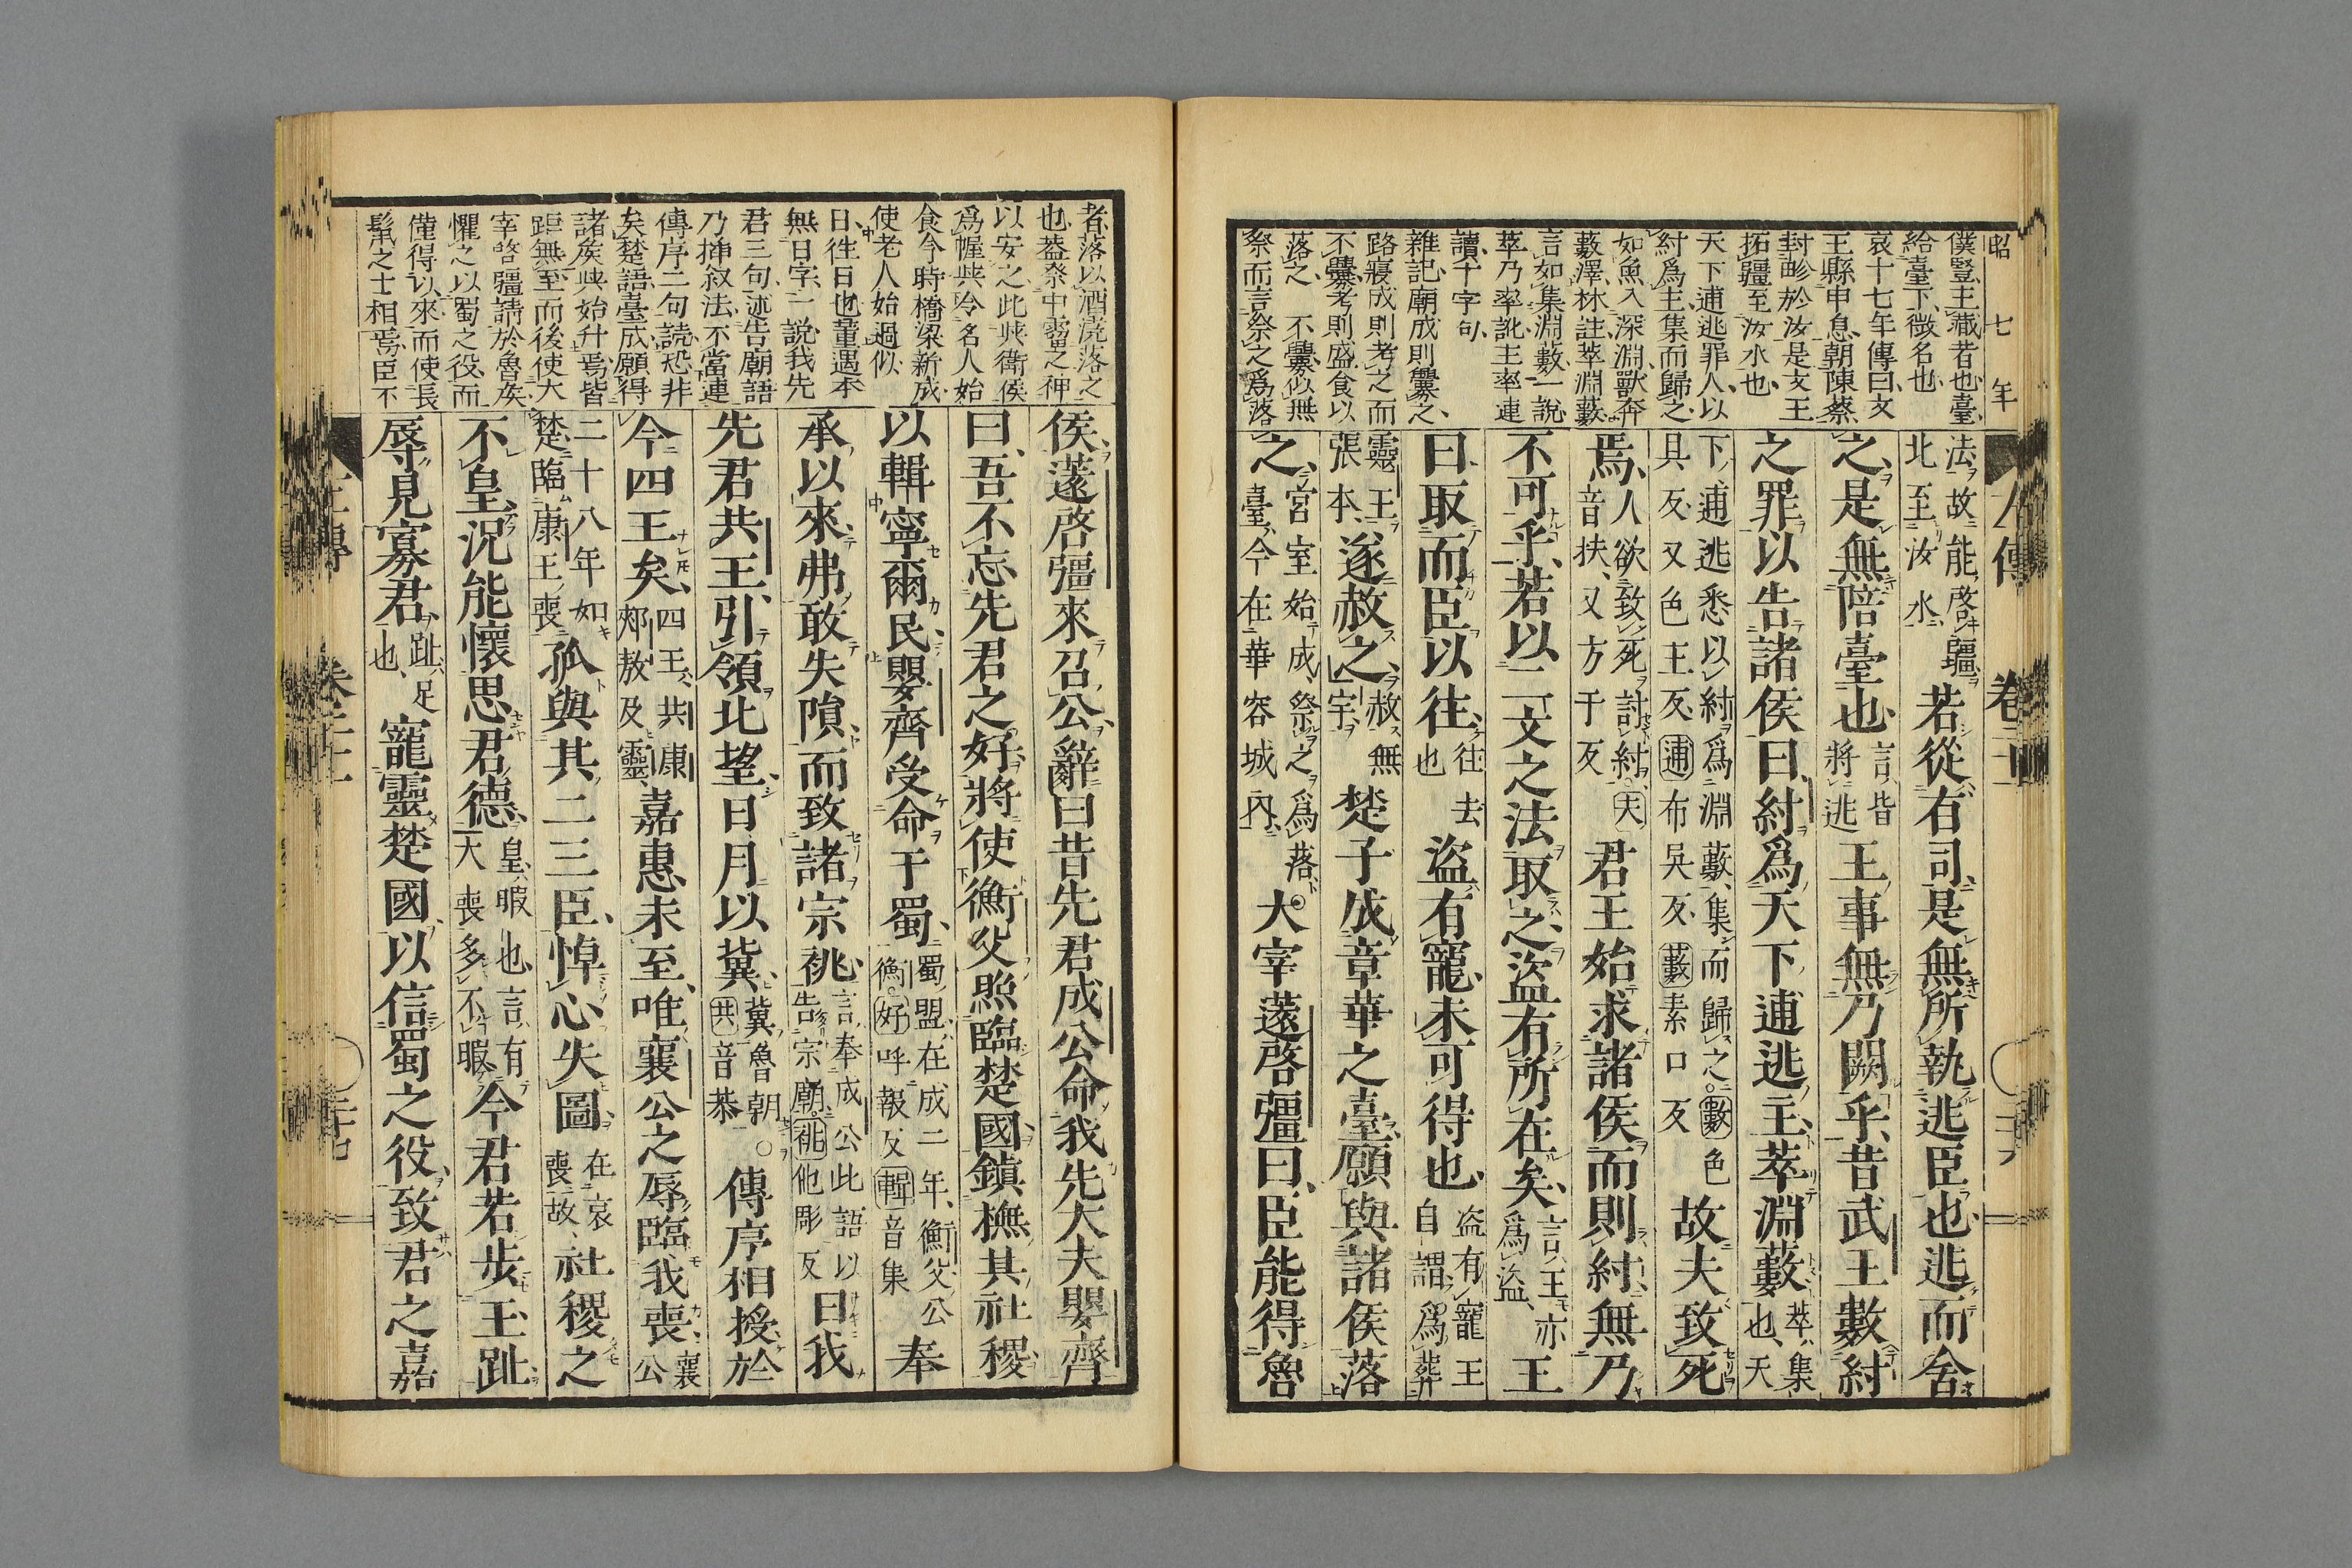 昭七年
左傳 卷二十一
僕豎主藏者也臺
給臺下徵名也
哀十七年傳曰文
王縣申息朝陳蔡
封畛於汝是文王
拓疆至汝水也
天下逋逃罪人以
紂爲主集而歸之
如魚入深淵獸奔
藪澤林註萃淵藪
言如集淵藪一說
萃乃率訛主率連
讀十字句
雜記廟成則釁之
路寢成則考之而
不釁考則盛食以
落之 不釁似無
祭而言祭之爲落
法故能啓疆北至汝水若從有司是無所執逃臣也逃而舍
之是無陪臺也言皆將逃王事無乃闕乎昔武王數紂
之罪以告諸侯曰紂爲天下逋逃主萃淵藪萃集也天
下逋逃悉以紂爲淵藪集而歸之○數色具反又色主反逋布吳反藪素口反故夫致死
焉人欲致死討紂○夫音扶又方于反君王始求諸侯而則紂無乃
不可乎若以二文之法取之盜有所在矣言王亦爲盜王
曰取而臣以往往去也盜有寵未可得也盜有寵王自謂爲葬
靈王張本遂赦之赦無宇楚子成章華之臺願與諸侯落
之宮室始成祭之爲落臺今在華容城內○大宰薳啓彊曰臣能得魯
者落以酒澆落之
也蓋祭中霤之神
以安之此與衞侯
爲幄與令名人始
食今時橋梁新成
使老人始過似
日往日也董遇本
無日字一說我先
君三句述告廟語
乃插叙法不當連
傳序二句讀恐非
矣楚語臺成願得
諸侯與始升焉皆
距無至而後使大
宰啓疆請於魯侯
懼之以蜀之役而
僅得以來而使長
鬣之士相焉臣不
侯薳啓彊來召公辭曰昔先君成公命我先大夫嬰齊
曰吾不忘先君之好將使衡父照臨楚國鎮撫其社稷
以輯寧爾民嬰齊受命于蜀蜀盟在成二年衡父公衡○好呼報反輯音集奉
承以來弗敢失隕而致諸宗祧言奉成公此語以告宗廟○祧他彫反曰我
先君共王引領北望日月以冀冀魯朝○共音恭傳序相授於
今四王矣四王共康郟敖及靈嘉惠未至唯襄公之辱臨我喪襄公
二十八年如楚臨康王喪孤與其二三臣悼心失圖在哀喪故社稷之
不皇況能懷思君德皇暇也言有大喪多不暇今君若步玉趾
辱見寡君趾足也寵靈楚國以信蜀之役致君之嘉